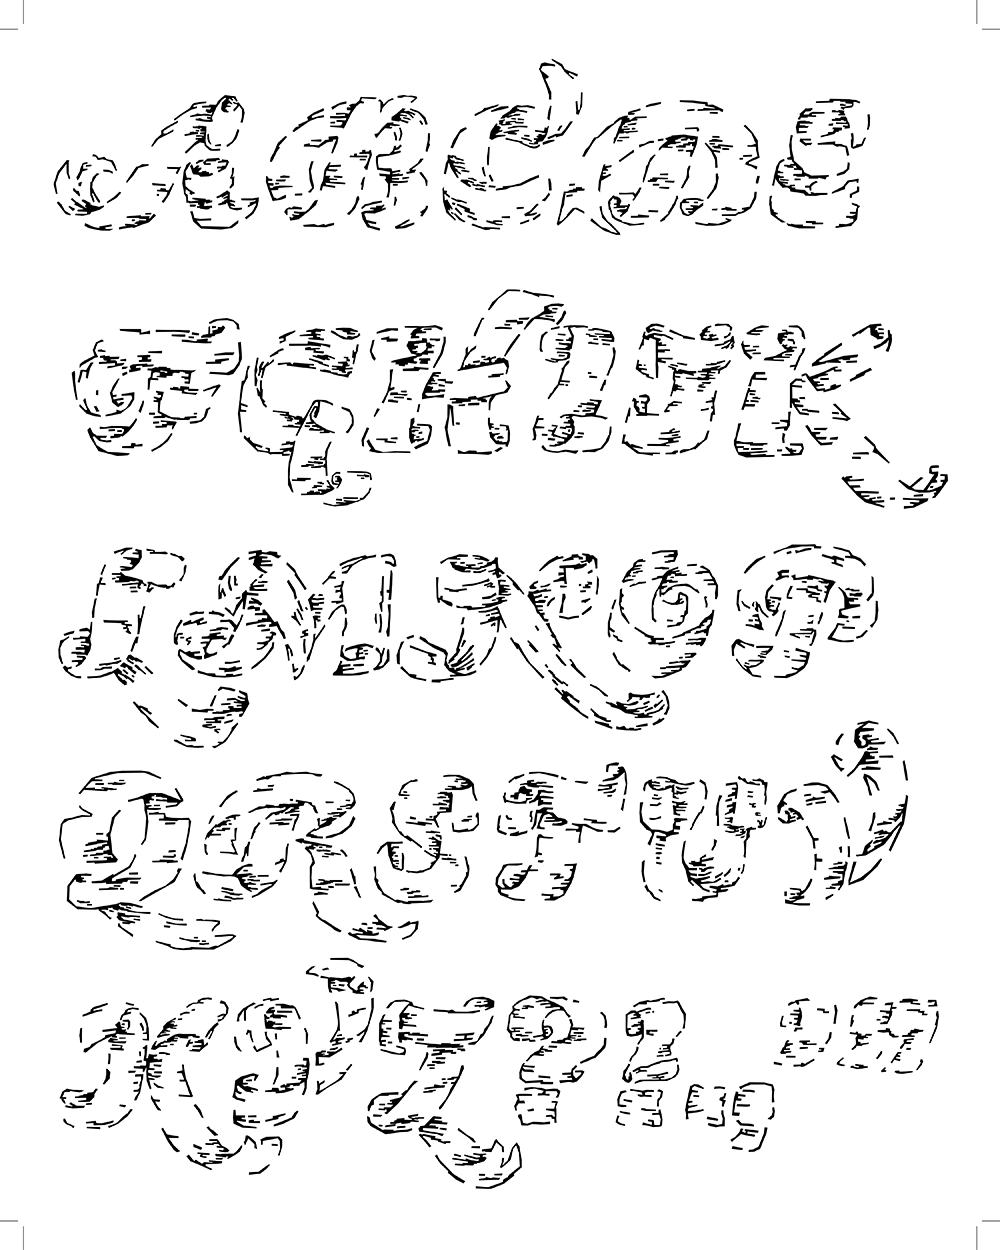 ABCDE
FGHIJK
LMNOP
QRSTUV
XYZ?!.,'"